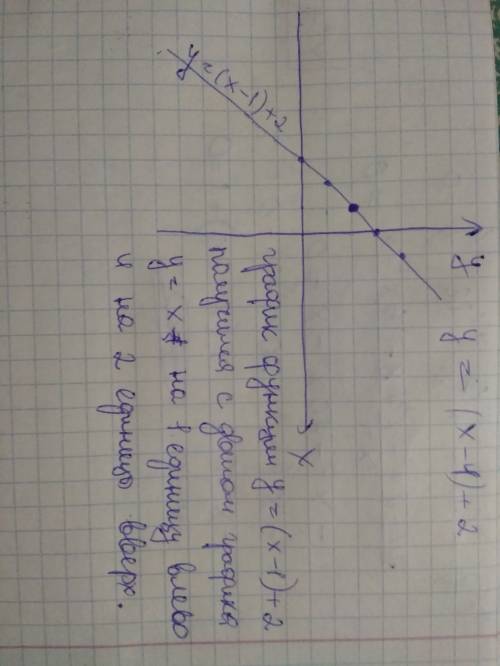 y = (x-1)+2
y
y=(x-1)+2
x
график функции y=(x-1)+2
получился с двигом графика
y = x на 1 единицу влево
и на 2 единицы вверх.